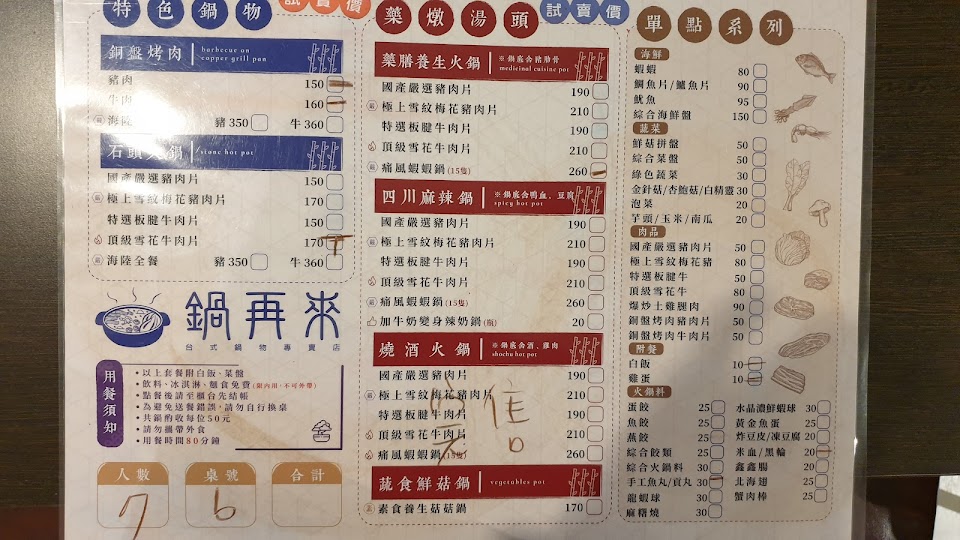 特色鍋物 試賣價
銅盤烤肉 barbecue on copper grill pan
豬肉 150
牛肉 160
海陸 豬350 牛360
石頭火鍋 stone hot pot
國產嚴選豬肉片 150
極上雪紋梅花豬肉片 170
特選板腱牛肉片 150
頂級雪花牛肉片 170
海陸全餐 豬350 牛360
鍋再來
台式鍋物專賣店
用餐須知
•以上套餐附白飯、菜盤
•飲料、冰淇淋、麵食免費(限內用,不可外帶)
•點餐後請至櫃台先結帳
•為避免送餐錯誤,請勿自行換桌
•共鍋酌收每位50元
•請勿攜帶外食
•用餐時間80分鐘
人數 桌號 合計
7 6
藥燉湯頭 試賣價
藥膳養生火鍋 ※鍋底含豬肋骨 medicinal cuisine pot
國產嚴選豬肉片 190
極上雪紋梅花豬肉片 210
特選板腱牛肉片 190
頂級雪花牛肉片 210
痛風蝦蝦鍋(15隻) 260
四川麻辣鍋 ※鍋底含鴨血、豆腐 spicy hot pot
國產嚴選豬肉片 190
極上雪紋梅花豬肉片 210
特選板腱牛肉片 190
頂級雪花牛肉片 210
痛風蝦蝦鍋(15隻) 260
加牛奶變身辣奶鍋(瓶) 20
燒酒火鍋 ※鍋底含酒、雞肉 shochu hot pot
國產嚴選豬肉片 190
極上雪紋梅花豬肉片 210
特選板腱牛肉片 190
頂級雪花牛肉片 210
痛風蝦蝦鍋(15隻) 260
蔬食鮮菇鍋 vegetables pot
素食養生菇菇鍋 170
單點系列
海鮮
蝦蝦 80
鯛魚片/鱸魚片 90
魷魚 95
綜合海鮮盤 150
蔬菜
鮮菇拼盤 50
綜合菜盤 50
綠色蔬菜 30
金針菇/杏鮑菇/白精靈 30
泡菜 20
芋頭/玉米/南瓜 20
肉品
國產嚴選豬肉片 50
極上雪紋梅花豬 80
特選板腱牛 50
頂級雪花牛 80
爆炒土雞腿肉 90
銅盤烤肉豬肉片 50
銅盤烤肉牛肉片 50
附餐
白飯 10
雞蛋 10
火鍋料
蛋餃 25 水晶濃鮮蝦球 30
魚餃 25 黃金魚蛋 25
燕餃 25 炸豆皮/凍豆腐 20
綜合餃類 25 米血/黑輪 20
綜合火鍋料 30 鑫鑫腸 20
手工魚丸/貢丸 30 北海翅 25
龍蝦球 30 蟹肉棒 25
麻糬燒 30